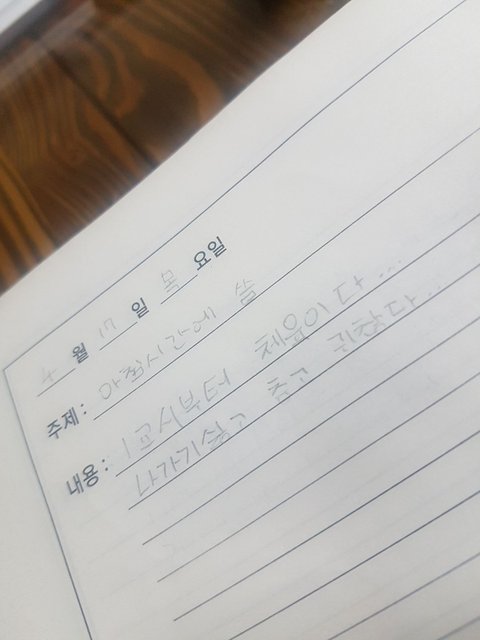 4 월 17 일 목 요일
주제: 아침시간에 씀
내용: 1교시부터 체육이다...
나가기싫고 춥고 귀찮다..